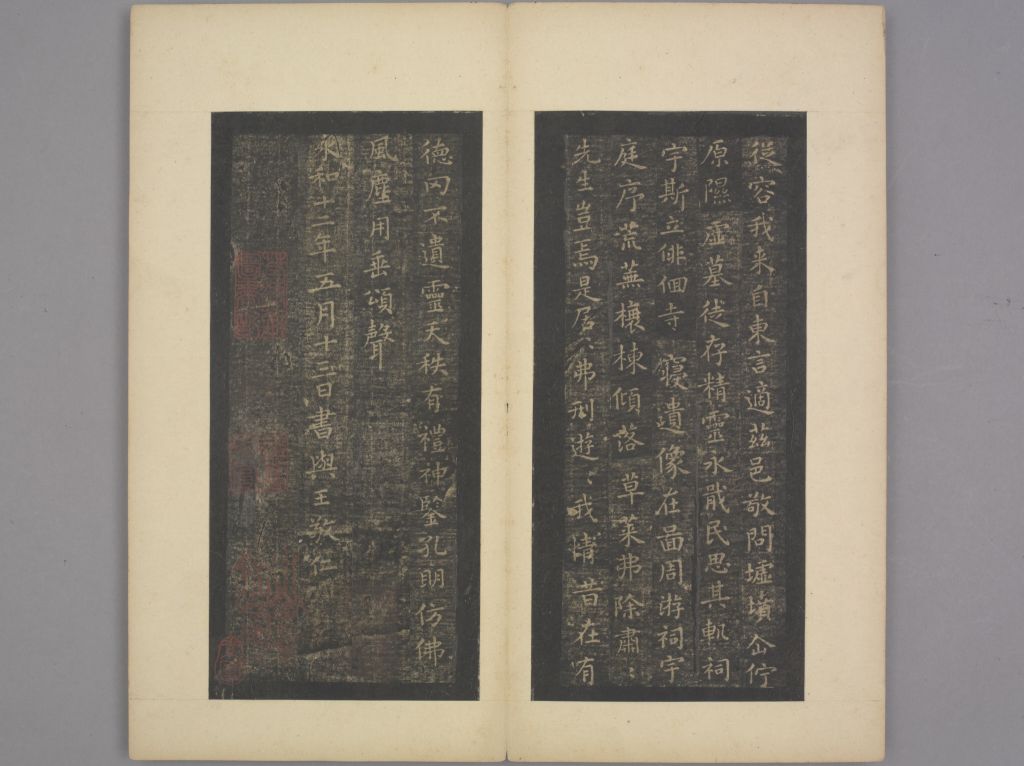 從容我来自東言適茲邑敬問墟墳企佇
原隰虛墓徒存精靈永戢民思其軌祠
宇斯立俳佪寺寢遺像在啚周遊祠宇
庭序荒蕪榱棟傾落草萊弗除肅〻
先生豈焉是居〻弗刑遊〻我情昔在有
德罔不遺靈天秩有禮神鑒孔明仿佛
風塵用垂頌聲
永和十二年五月十三日書與王敬仁